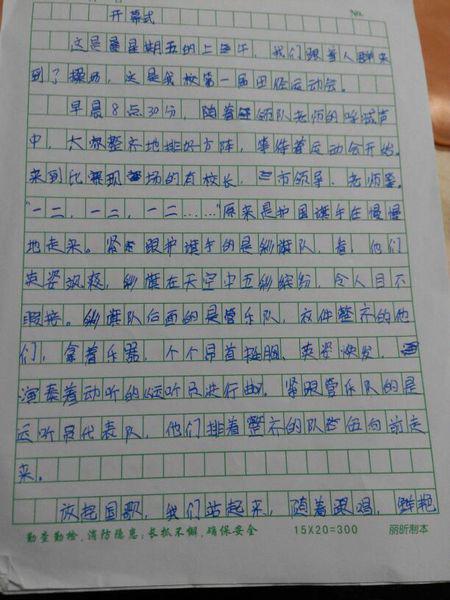 No.
开幕式
这是星期五的上午,我们跟着人群来
到了操场,这是我校第一届田径运动会。
早晨8点30分,随着领队老师的呼喊声
中,大家整齐地排好方阵,等待着运动会开始。
来到比赛现场的有校长,市领导,老师等。
“一二,一二,一二……”原来是护国旗手在慢慢
地走来。紧跟护旗手的是彩旗队,看,他们
英姿飒爽,彩旗在天空中五彩缤纷,令人目不
暇接。彩旗队后面的是管乐队,衣件整齐的他
们,拿着乐器,个个昂首挺胸,英姿焕发,
演奏着动听的《运动员进行曲。紧跟管乐队的是
运动员代表队,他们排着整齐的队伍向前走
来。
放起国歌,我们站起来,随着 鲜艳
勤查勤检,消防隐患;长抓不懈,确保安全 15X20=300 丽昕制本